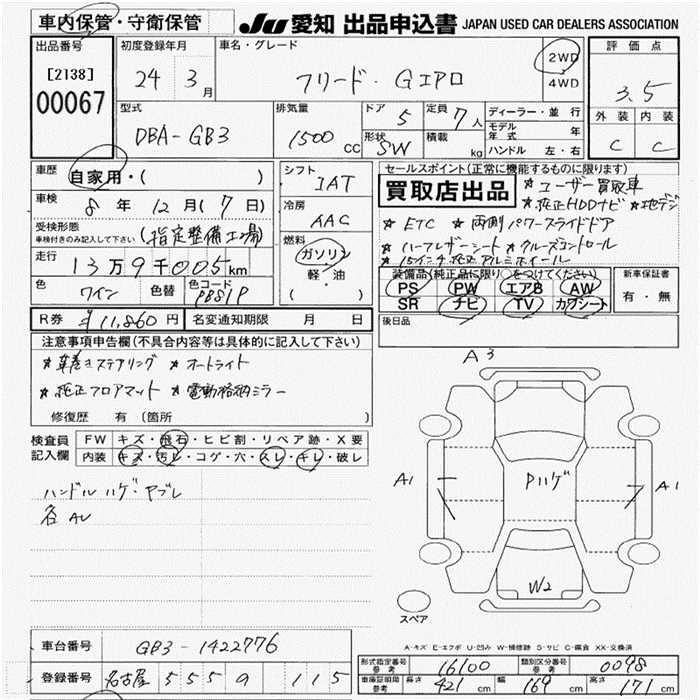 車内保管・守衛保管
JU 愛知 出品申込書 JAPAN USED CAR DEALERS ASSOCIATION
出品番号
[2138]
00067
初度登録年月
24 3月
車名・グレード
フリード・Gエアロ
2WD
4WD
評価点
3.5
外装 内装
C C
型式
DBA-GB3
排気量
1500 cc
ドア 5
定員 7人
形状 SW
積載 kg
ディーラー・並行
モデル年式 年
ハンドル 左・右
車歴 自家用・( )
車検 8年 12月(7日)
受検形態
車検付きのみ記入して下さい (指定整備工場)
走行 13万9千005km
色 ワイン 色替 色コード PB81P
シフト
IAT
冷房
AAC
燃料
ガソリン
軽・油
( )
セールスポイント(正常に機能するものに限ります)
買取店出品
★ユーザー買取車
★純正HDDナビ ★地デジ
★ETC ★両側パワースライドドア
★ハーフレザーシート ★クルーズコントロール
★15インチ純正アルミホイール
装備品(純正品に限り○をつけてください)
PS PW エアB AW
SR ナビ TV カワシート
新車保証書
有・無
後日品
R券 ¥11,860円 名変通知期限 月 日
注意事項申告欄(不具合内容等は具体的に記入して下さい)
★革巻きステアリング ★オートライト
★純正フロアマット ★電動格納ミラー
修復歴 有 (箇所 )
検査員
記入欄
FW キズ・飛石・ヒビ割・リペア跡・X要
内装 キズ・汚レ・コゲ・穴・スレ・キレ・破レ
ハンドルハゲ・ヤブレ
各AU
A3
A1
Pハゲ
A1
W2
スペア
A-キズ E-エクボ U-凹み W-補修跡 S-サビ C-腐食 XX-交換済
車台番号 GB3-1422776
登録番号 名古屋 555 115
型式指定番号
参考 16100
類別区分番号
参考 0098
車庫証明用
参考 長さ 421cm 幅 169cm 高さ 171cm